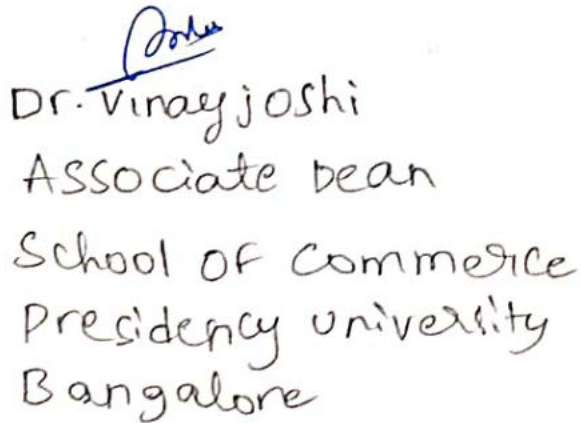 Dr. Vinay joshi
Associate Dean
School OF Commerce
Presidency university
Bangalore